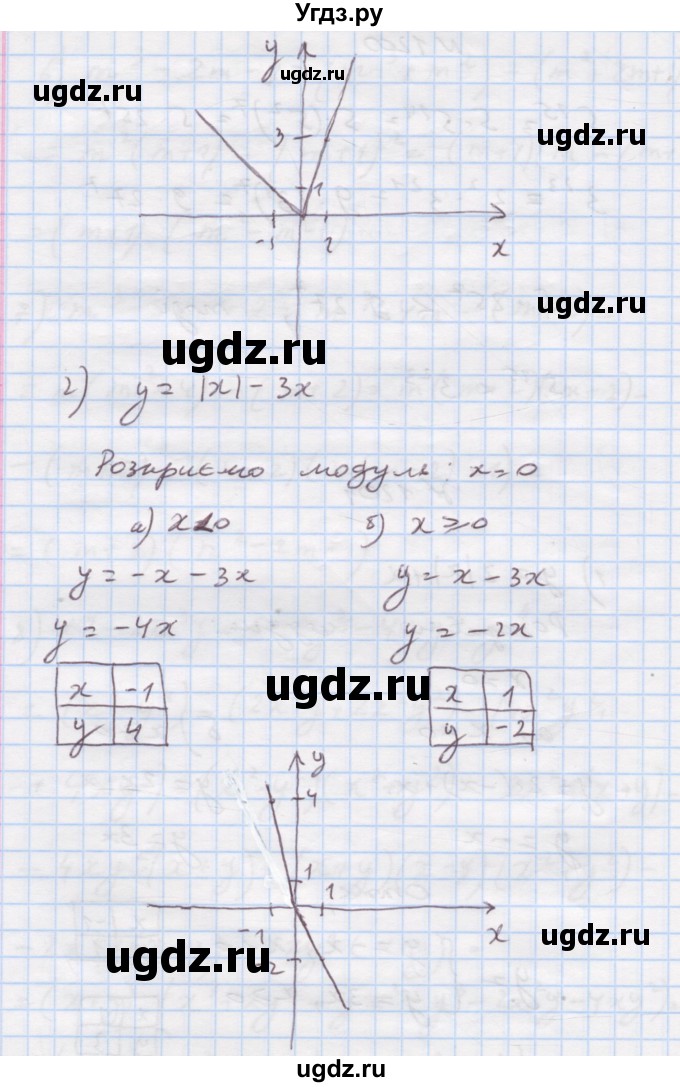 Угдз.ру
y
ugdz.ru
ugdz.ru
ugdz.ru
3
1
-1
2
x
ugdz.ru
ugdz.ru
2) y = |x| - 3x
Розкриємо модуль: x=0
а) x<0 б) x≥0
y = -x - 3x y = x - 3x
ugdz.ru
y = -4x y = -2x
x -1 x 1
y 4 y -2
ugdz.ru
y
4
1
1
-1
x
-2
ugdz.ru
ugdz.ru
ugdz.ru